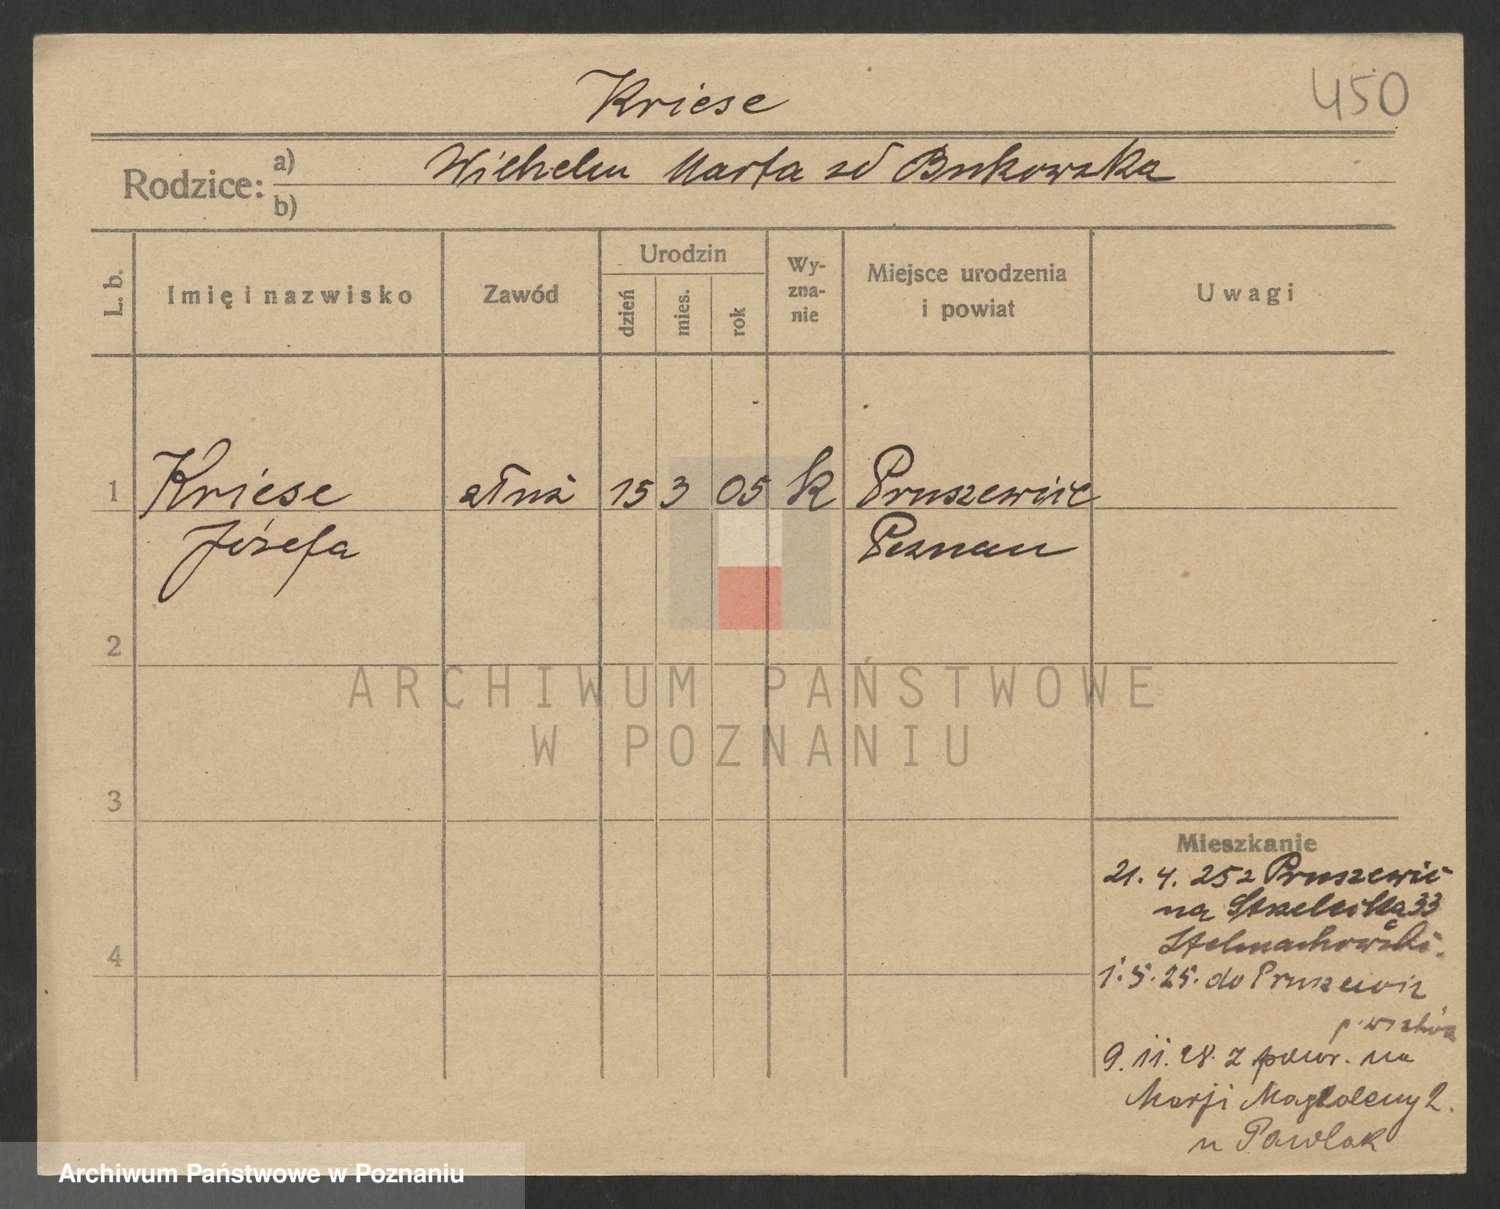 Kriese
450
Rodzice: a) Wilhelm Marta zd Bukowska
b)
L. b.
Imię i nazwisko
Zawód
Urodzin
dzień
mies.
rok
Wy-
zna-
nie
Miejsce urodzenia
i powiat
Uwagi
1 Kriese służ 15 3 05 k Pruszewiec
Józefa Poznań
2
ARCHIWUM PAŃSTWOWE
W POZNANIU
3
Mieszkanie
21. 4. 25 z Pruszewic
na Strzelecka 33
4
1. 5. 25. do Pruszewic
9. 11. 28. z powr. na
Marji Magdaleny 2.
u Pawlak
Archiwum Państwowe w Poznaniu